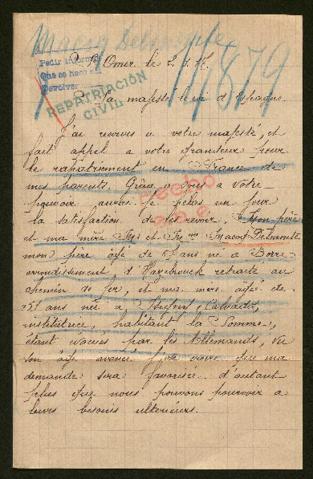 Pedir informes
Que se haga
Devolver
REPATRIACIÓN
CIVIL
11879
St Omer le
Sa majesté le roi d'Espagne
J'ai recours a votre majesté, et
fait appel a votre grandeur pour
le rapatriement en France de
mes parents. Grâce a vous a votre
pouvoir aurai-je peut-être un jour
la satisfaction de les revoir. Mon père
et ma mère Mr et
mon père âgé de ans né a Borre
arrondissement d'Hazebrouck retraité au
chemin de fer, et ma mère âgée de
51 ans née a Calvados,
institutrice, habitant la Somme,
étant évacués par les Allemands, vu
son âge avancé. J'ose croire que ma
demande sera favorisée d'autant
plus que nous pouvons pourvoir a
leurs besoins ultérieurs.